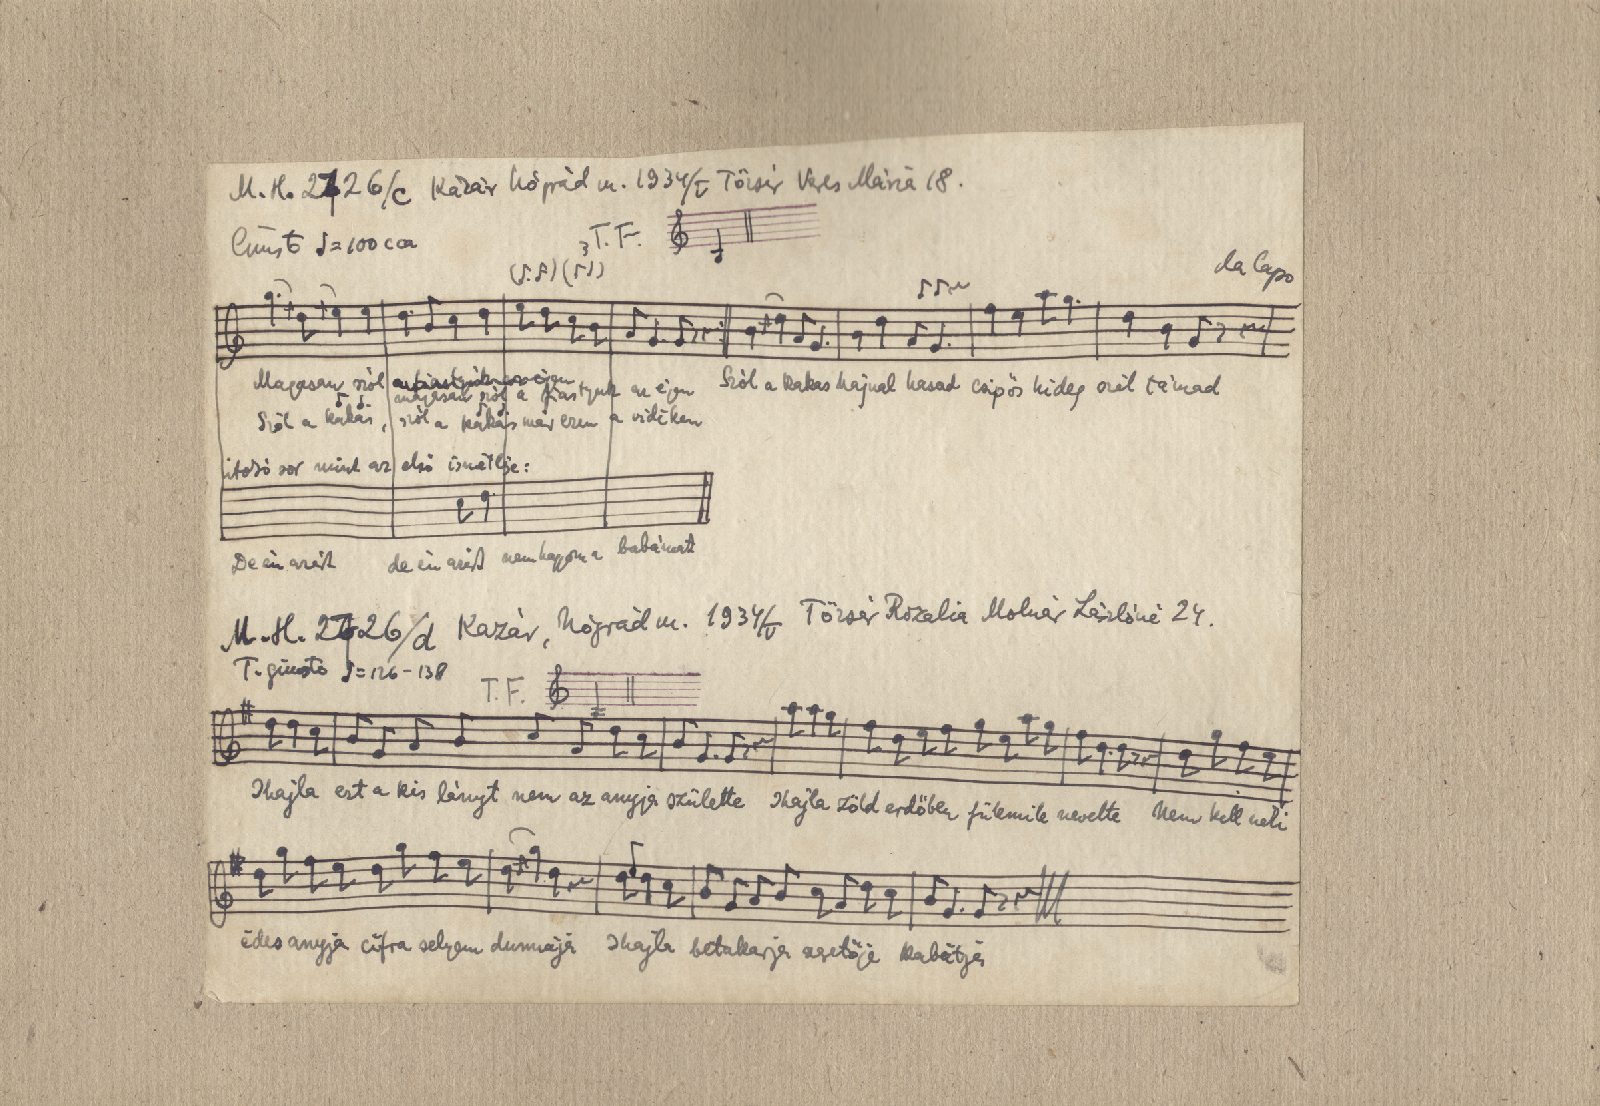 M. H. 2726/c Kazár Nógrád m. 1934/V Tőzsér Veres Mária 18.
Giusto ♪=100 cca
T. F.
da Capo
Magasan szól magasan szól a fiastyuk az égen Szól a kakas hajnal hasad csipős hideg szél támad
Szól a kakas, szól a kakas már ezen a vidéken
utolsó sor mint az első ismétlője:
De én azért de én azért nem hagyom a babámat
M. H. 2726/d Kazár, Nógrád m. 1934/V Tőzsér Rozalia Molnár Lászlóné 24.
T. giusto ♪=126-138
T. F.
Ihajla ezt a kis lányt nem az anyja születte Ihajla zöld erdőben fülemile nevelte Nem kell neki
édes anyja cifra selyem dunnája Ihajla betakarja szeretője kabátja